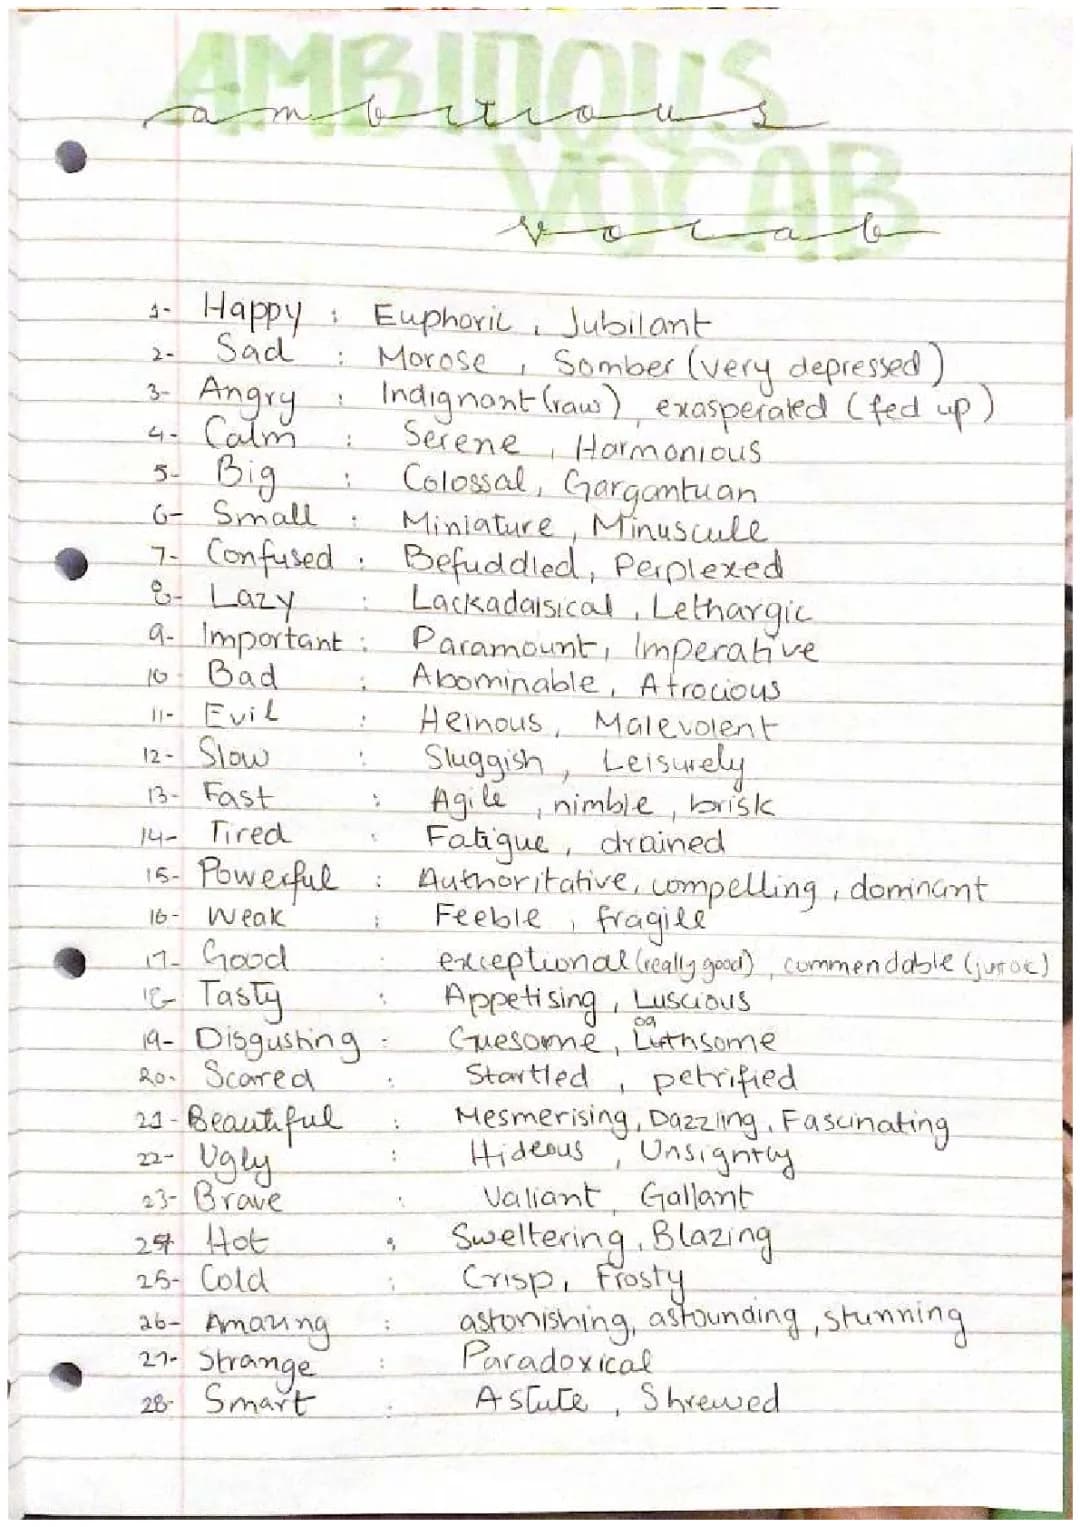 AMBITIOUS
ambitious
VOCAB
vocab
1- Happy : Euphoric, Jubilant
2- Sad : Morose, Somber (very depressed)
3- Angry : Indignant (raw), exasperated (fed up)
4- Calm : Serene, Harmonious
5- Big : Colossal, Gargantuan
6- Small : Miniature, Minuscule
7- Confused : Befuddled, Perplexed
8- Lazy : Lackadaisical, Lethargic
9- Important : Paramount, Imperative
10- Bad : Abominable, Atrocious
11- Evil : Heinous, Malevolent
12- Slow : Sluggish, Leisurely
13- Fast : Agile, nimble, brisk
14- Tired : Fatigue, drained
15- Powerful : Authoritative, compelling, dominant
16- Weak : Feeble, fragile
17- Good : exceptional (really good), commendable
18- Tasty : Appetising, Luscious
19- Disgusting : Gruesome,
20- Scared : Startled, petrified
21- Beautiful : Mesmerising, Dazzling, Fascinating
22- Ugly : Hideous, Unsightly
23- Brave : Valiant, Gallant
24 Hot : Sweltering, Blazing
25- Cold : Crisp, Frosty
26- Amazing : astonishing, astounding, stunning
27- Strange : Paradoxical
28- Smart : Astute, Shrewed